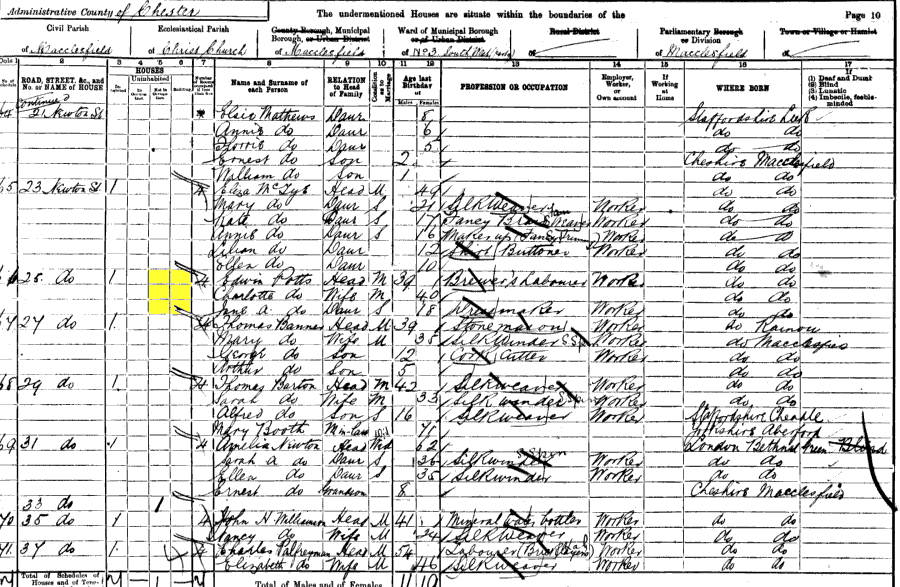 Administrative County of Chester
The undermentioned Houses are situate within the boundaries of the
Page 10
Civil Parish
Ecclesiastical Parish
County Borough, Municipal Borough, or Urban District
Ward of Municipal Borough or of Urban District
Rural District
Parliamentary Borough or Division
Town or Village or Hamlet
of Macclesfield
of Christ Church
of Macclesfield
of No 3. South
of
of Macclesfield
of
Cols 1 2 3 4 5 6 7 8 9 10 11 12 13 14 15 16 17
ROAD, STREET, &c., and No. or NAME of HOUSE
HOUSES
Uninhabited
Name and Surname of each Person
RELATION to Head of Family
Condition as to Marriage
Age last Birthday of
Males Females
PROFESSION OR OCCUPATION
Employer, Worker, or Own account
If Working at Home
WHERE BORN
If (1) Deaf and Dumb (2) Blind (3) Lunatic (4) Imbecile, feeble-minded
Continued
21 Newton St Mathews Daur 8 Staffordshire Leek
Annie do Daur 6 do do
do Daur 5 do do
Ernest do Son 2 Cheshire Macclesfield
William do Son 1 do do
65 23 Newton St 1 4 Eliza Head 49 do do
Mary do Daur S 21 Silk Weaver Worker do do
Kate do Daur S 17 Fancy Worker do do
Annie do Daur S 16 Maker up Worker do
Lilian do Daur 12 Shirt Buttoner Worker do do
Ellen do Daur 10 do do
25 do 1 4 Edwin Potts Head M 39 Brewer's Labourer Worker do do
Charlotte do Wife M 40 do do
Jane A. do Daur S 18 Dressmaker Worker do do
67 27 do 1 4 Thomas Banner Head M 39 Stonemason Worker do Rainow
Mary do Wife M 35 Silk Winder Worker do Macclesfield
George do Son 12 Cork Cutter Worker do do
Arthur do Son 5 do do
68 29 do 1 4 Thomas Barton Head M 42 Silk weaver Worker do do
Sarah do Wife M 33 Silk winder Worker do do
Alfred do Son S 16 Silk weaver Worker Staffordshire Cheadle
Mary Booth M-in-law 71 Aberford
69 31 do 1 4 Amelia Newton Head Wid 62 London Bethnal Green Blind
Sarah A do Daur S 36 Silk winder Worker do do
Ellen do Daur S 35 Silk winder Worker do do
Ernest do Grandson 8 Cheshire Macclesfield
33 do 1
70 35 do 1 4 John H Williamson Head M 41 Mineral water bottler Worker do do
Nancy do Wife M 34 Silk Weaver Worker do do
71 37 do 1 4 Charles Palfreyman Head M 54 Labourer Worker do do
Elizabeth do Wife M 46 Silk Weaver Worker do do
Total of Schedules of Houses and of
Total of Males and of Females
11